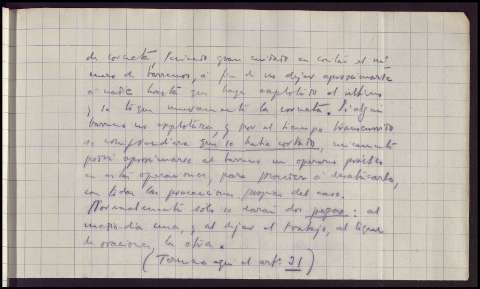 de corneta, teniendo gran cuidado en contar el nú-
mero de barrenos, a fin de no dejar aproximarse
a nadie hasta que haya explotado el último
y se toque nuevamente la corneta. Si algun
barreno no explotara, y por el tiempo transcurrido
se comprendiera que se había cortado, unicamente
podrá aproximarse al barreno un operario práctico
en estas operaciones, para proceder a descargarlo,
con todas las precauciones propias del caso.
Normalmente solo se darán dos pegas: al
medio-dia una, y al dejar el trabajo, al toque
de oraciones, la otra.
(Toman aqui el artº 21)